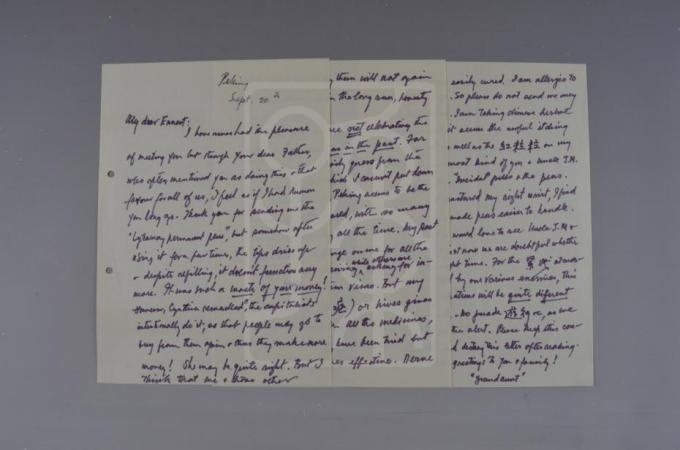 Peking
Sept. 20
My dear Ernest:
I have never had the pleasure
of meeting you but though your dear Father,
who often mentioned you as doing this & that
favour for all of us, I feel as if I had known
you long ago. Thank you for sending me the
permanent pens", but somehow after
using it for a few times, the tips dries up
& despite refilling, it doesn't function any
more. It was such a waste of your money!
However, Cynthia remarked, "the capitalists
intentionally do it, so that people may go to
buy from them again & thus they make more
money! She may be quite right. But I
think that we & those other
them will not again
in the long run, honesty
not celebrating this
as in the past. For
gross from the
which I cannot put down
Peking seems to be the
with so many
all the time. My Past
on me for all the
asking for in-
visas. But my
or hives gives
all the medicines,
have been tried but
effective. Nerve
easily cured. I am allergic to
So please do not send me any
I am taking chinese herbal
it seems the awful itching
as well as the 红 on my
most kind of you & Uncle J.M.
& the pens.
fractured my right wrist, I find
made pens easier to handle.
would love to see Uncle J.M. &
just now we are doubtful whether
right time. For the
by our various this
will be quite different
no parade as we
the alert. Please keep this con-
destroy this letter after reading.
greetings to you & family!
"Grand aunt"